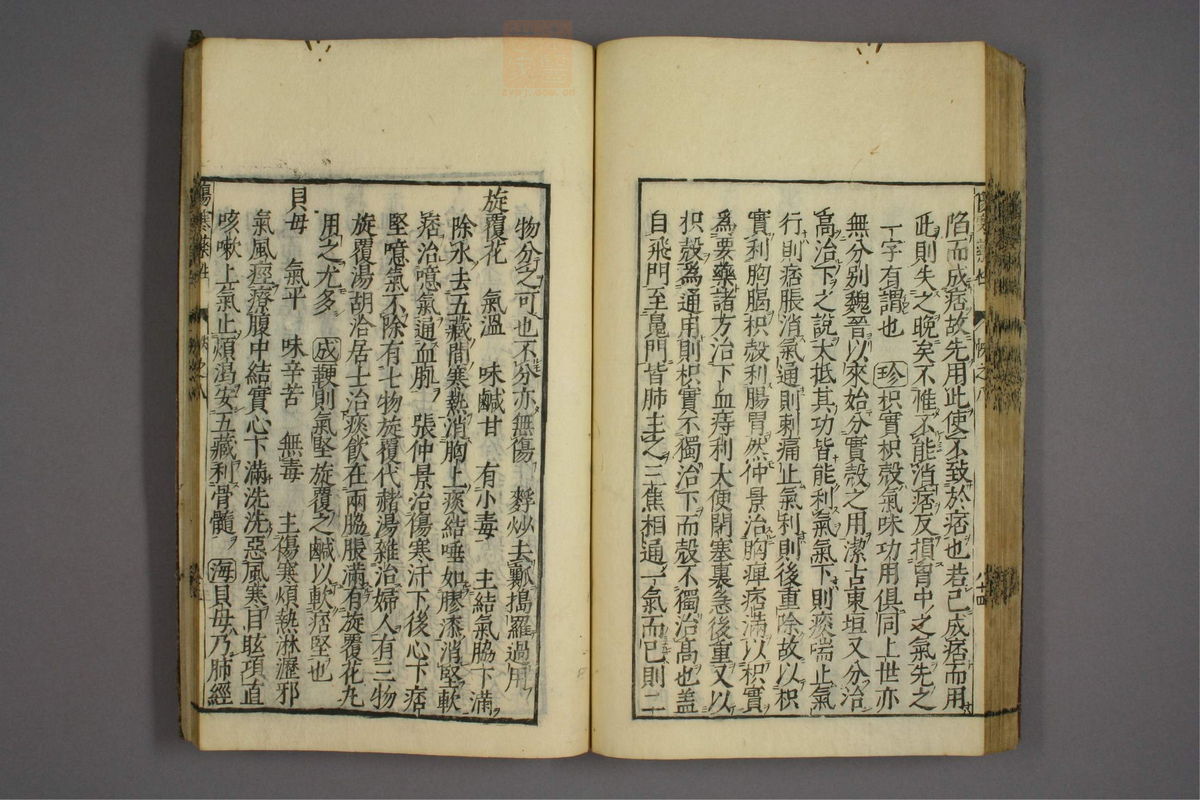 陷而成痞故先用此使不致於痞也若已成痞而用
此則失之晚矣不惟不能消痞反損胷中之氣先之
一字有謂也 珍枳實枳殼氣味功用俱同上世亦
無分别魏晉以來始分實殼之用潔古東垣又分治
髙治下之說大抵其功皆能利氣氣下則痰喘止氣
行則痞脹消氣通則刺痛止氣利則後重除故以枳
實利胸膈枳殼利腸胃然仲景治胸痺痞滿以枳實
爲要藥諸方治下血痔利大便閉塞裏急後重又以
枳殼爲通用則枳實不獨治下而殼不獨治髙也盖
自飛門至魄門皆肺主之三焦相通一氣而已則二
八十四
物分之可也不分亦無傷 麩炒去瓤搗羅過用
旋覆花 氣溫 味鹹甘 有小毒 主結氣脇下滿
除水去五藏間寒熱消胸上痰結唾如膠漆消堅軟
痞治噫氣通血脉 張仲景治傷寒汗下後心下痞
堅噫氣不除有七物旋覆代赭湯雜治婦人有三物
旋覆湯胡洽居士治痰飲在兩脇脹滿有旋覆花丸
用之尤多 成鞕則氣堅旋覆之鹹以軟痞堅也
貝母 氣平 味辛苦 無毒 主傷寒煩熱淋瀝邪
氣風痙療腹中結實心下滿洗洗惡風寒目眩項直
咳嗽上氣止煩渴安五藏利骨髓 海貝母乃肺經
傷寒藥性